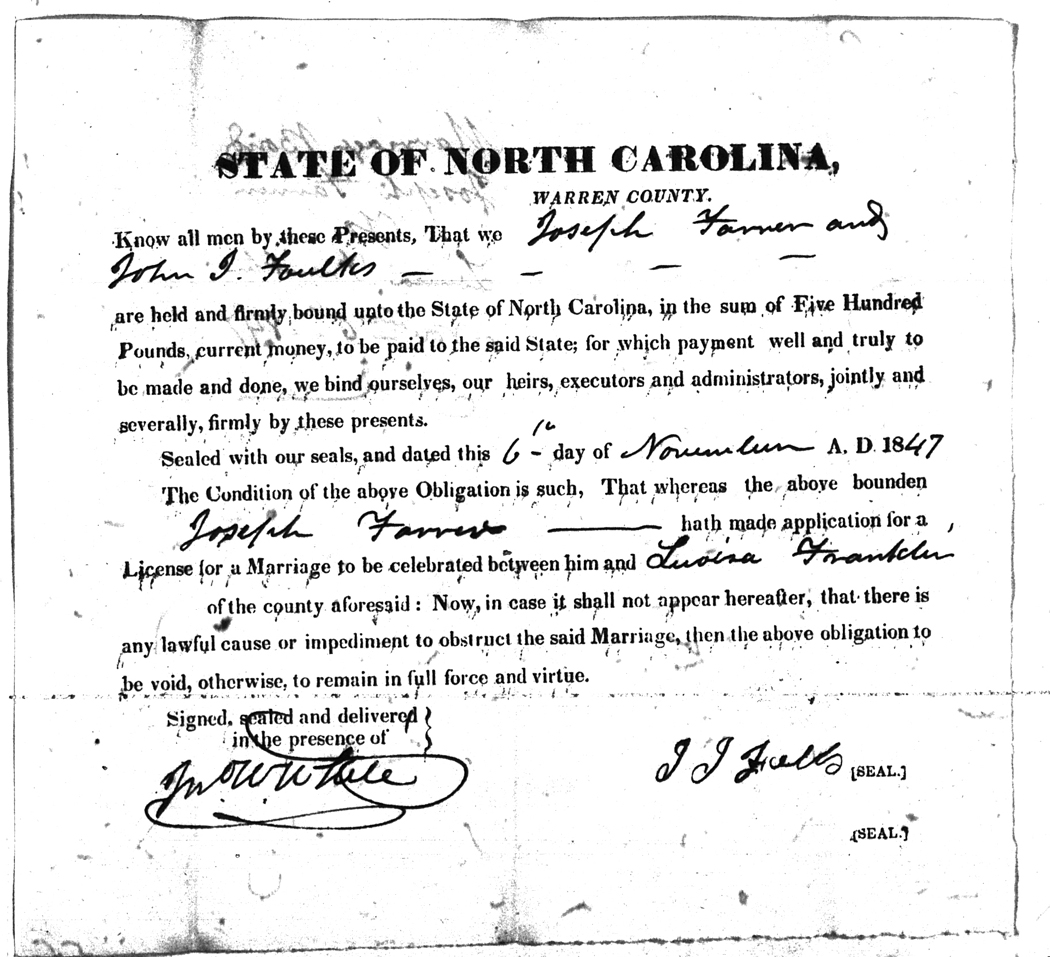 STATE OF NORTH CAROLINA,
WARREN COUNTY.
Know all men by these Presents, That we Joseph Farrer and
John J. Faulks — — — —
are held and firmly bound unto the State of North Carolina, in the sum of Five Hundred
Pounds, current money, to be paid to the said State; for which payment well and truly to
be made and done, we bind ourselves, our heirs, executors and administrators, jointly and
severally, firmly by these presents.
Sealed with our seals, and dated this 6th day of November A. D. 1847
The Condition of the above Obligation is such, That whereas the above bounden
Joseph Farrer —— hath made application for a
License for a Marriage to be celebrated between him and Luoisa Franklin
of the county aforesaid: Now, in case it shall not appear hereafter, that there is
any lawful cause or impediment to obstruct the said Marriage, then the above obligation to
be void, otherwise, to remain in full force and virtue.
Signed, sealed and delivered }
in the presence of
J J Falks [SEAL.]
[SEAL.]